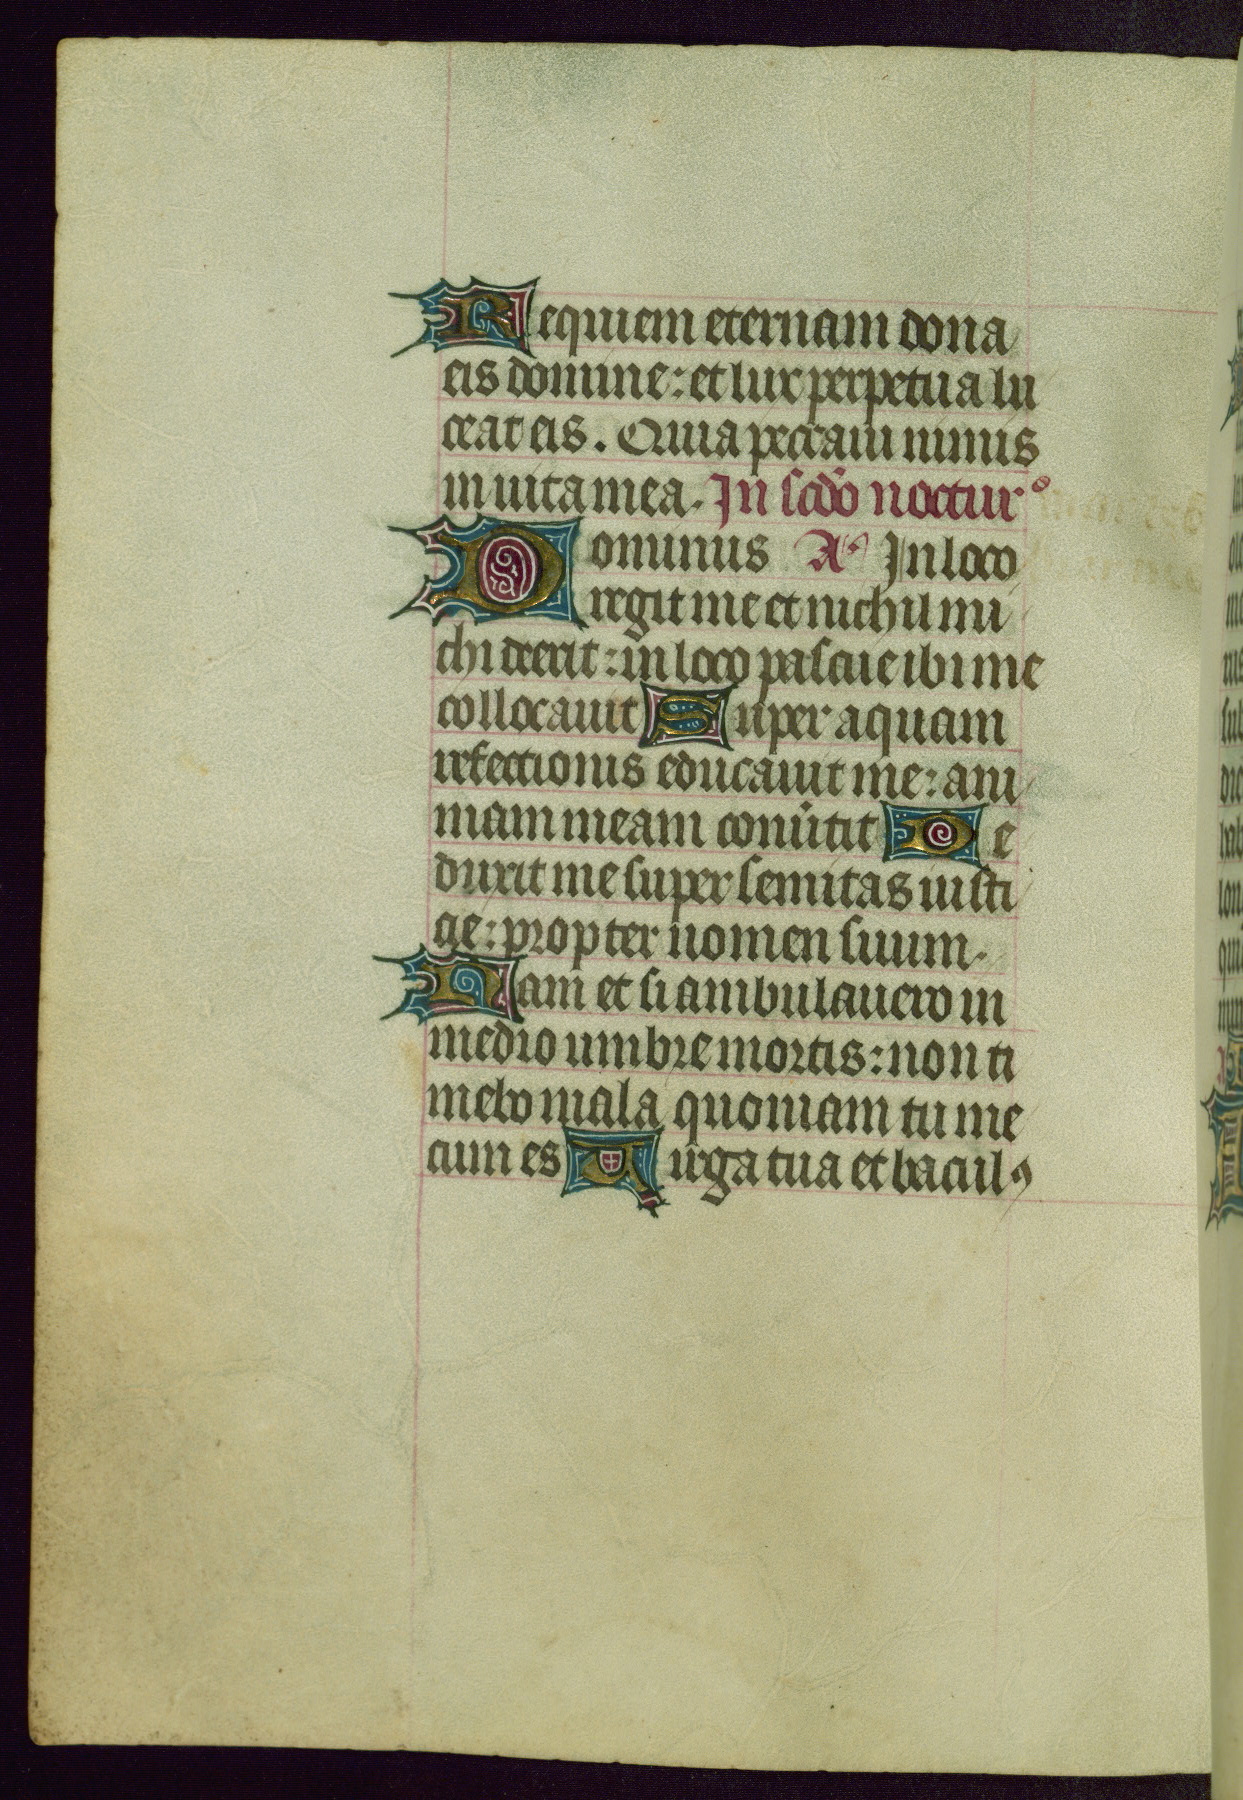 Requiem eternam dona
eis domine: et lux perpetua lu
ceat eis. Quia peccaui nimis
in uita mea. In scd̄o noctur°
Dominus A͂ In loco
regit me et nichil mi
chi deerit: in loco pascue ibi me
collocauit Super aquam
refectionis educauit me: ani
mam meam conu̾tit De
duxit me super semitas iusti
cie: propter nomen suum.
Nam et si ambulauero in
medio umbre mortis: non ti
mebo mala quoniam tu me
cum es Uirga tua et baculꝰ